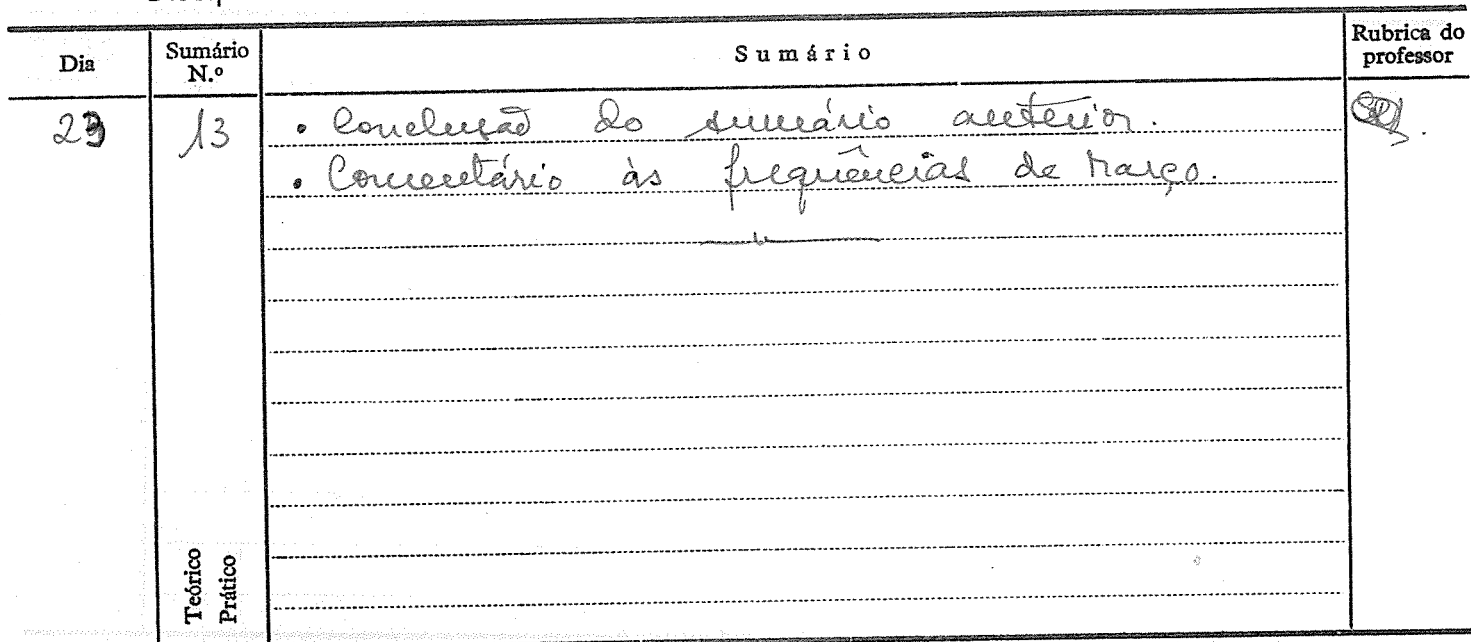 Dia
Sumário N.º
Sumário
Rubrica do professor
23
13
• Conclusão do sumário anterior.
• Comentário às frequências de Março.
Teórico
Prático